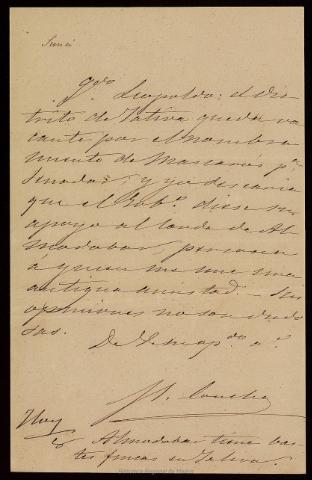 Qdo. Leopoldo: el dis-
trito de Játiva queda va-
cante por el nombra
miento de Mascarós pa.
Senador, y yo desearia
que el Gobo. diese su
apoyo al Conde de Al-
modobar, persona
á quien me une una
antigua amistad. Sus
opiniones no son dudo
sas.
De V. mi apdo. a.
M. Concha
Hoy
Almodobar tiene bas-
tes fincas en Jativa.